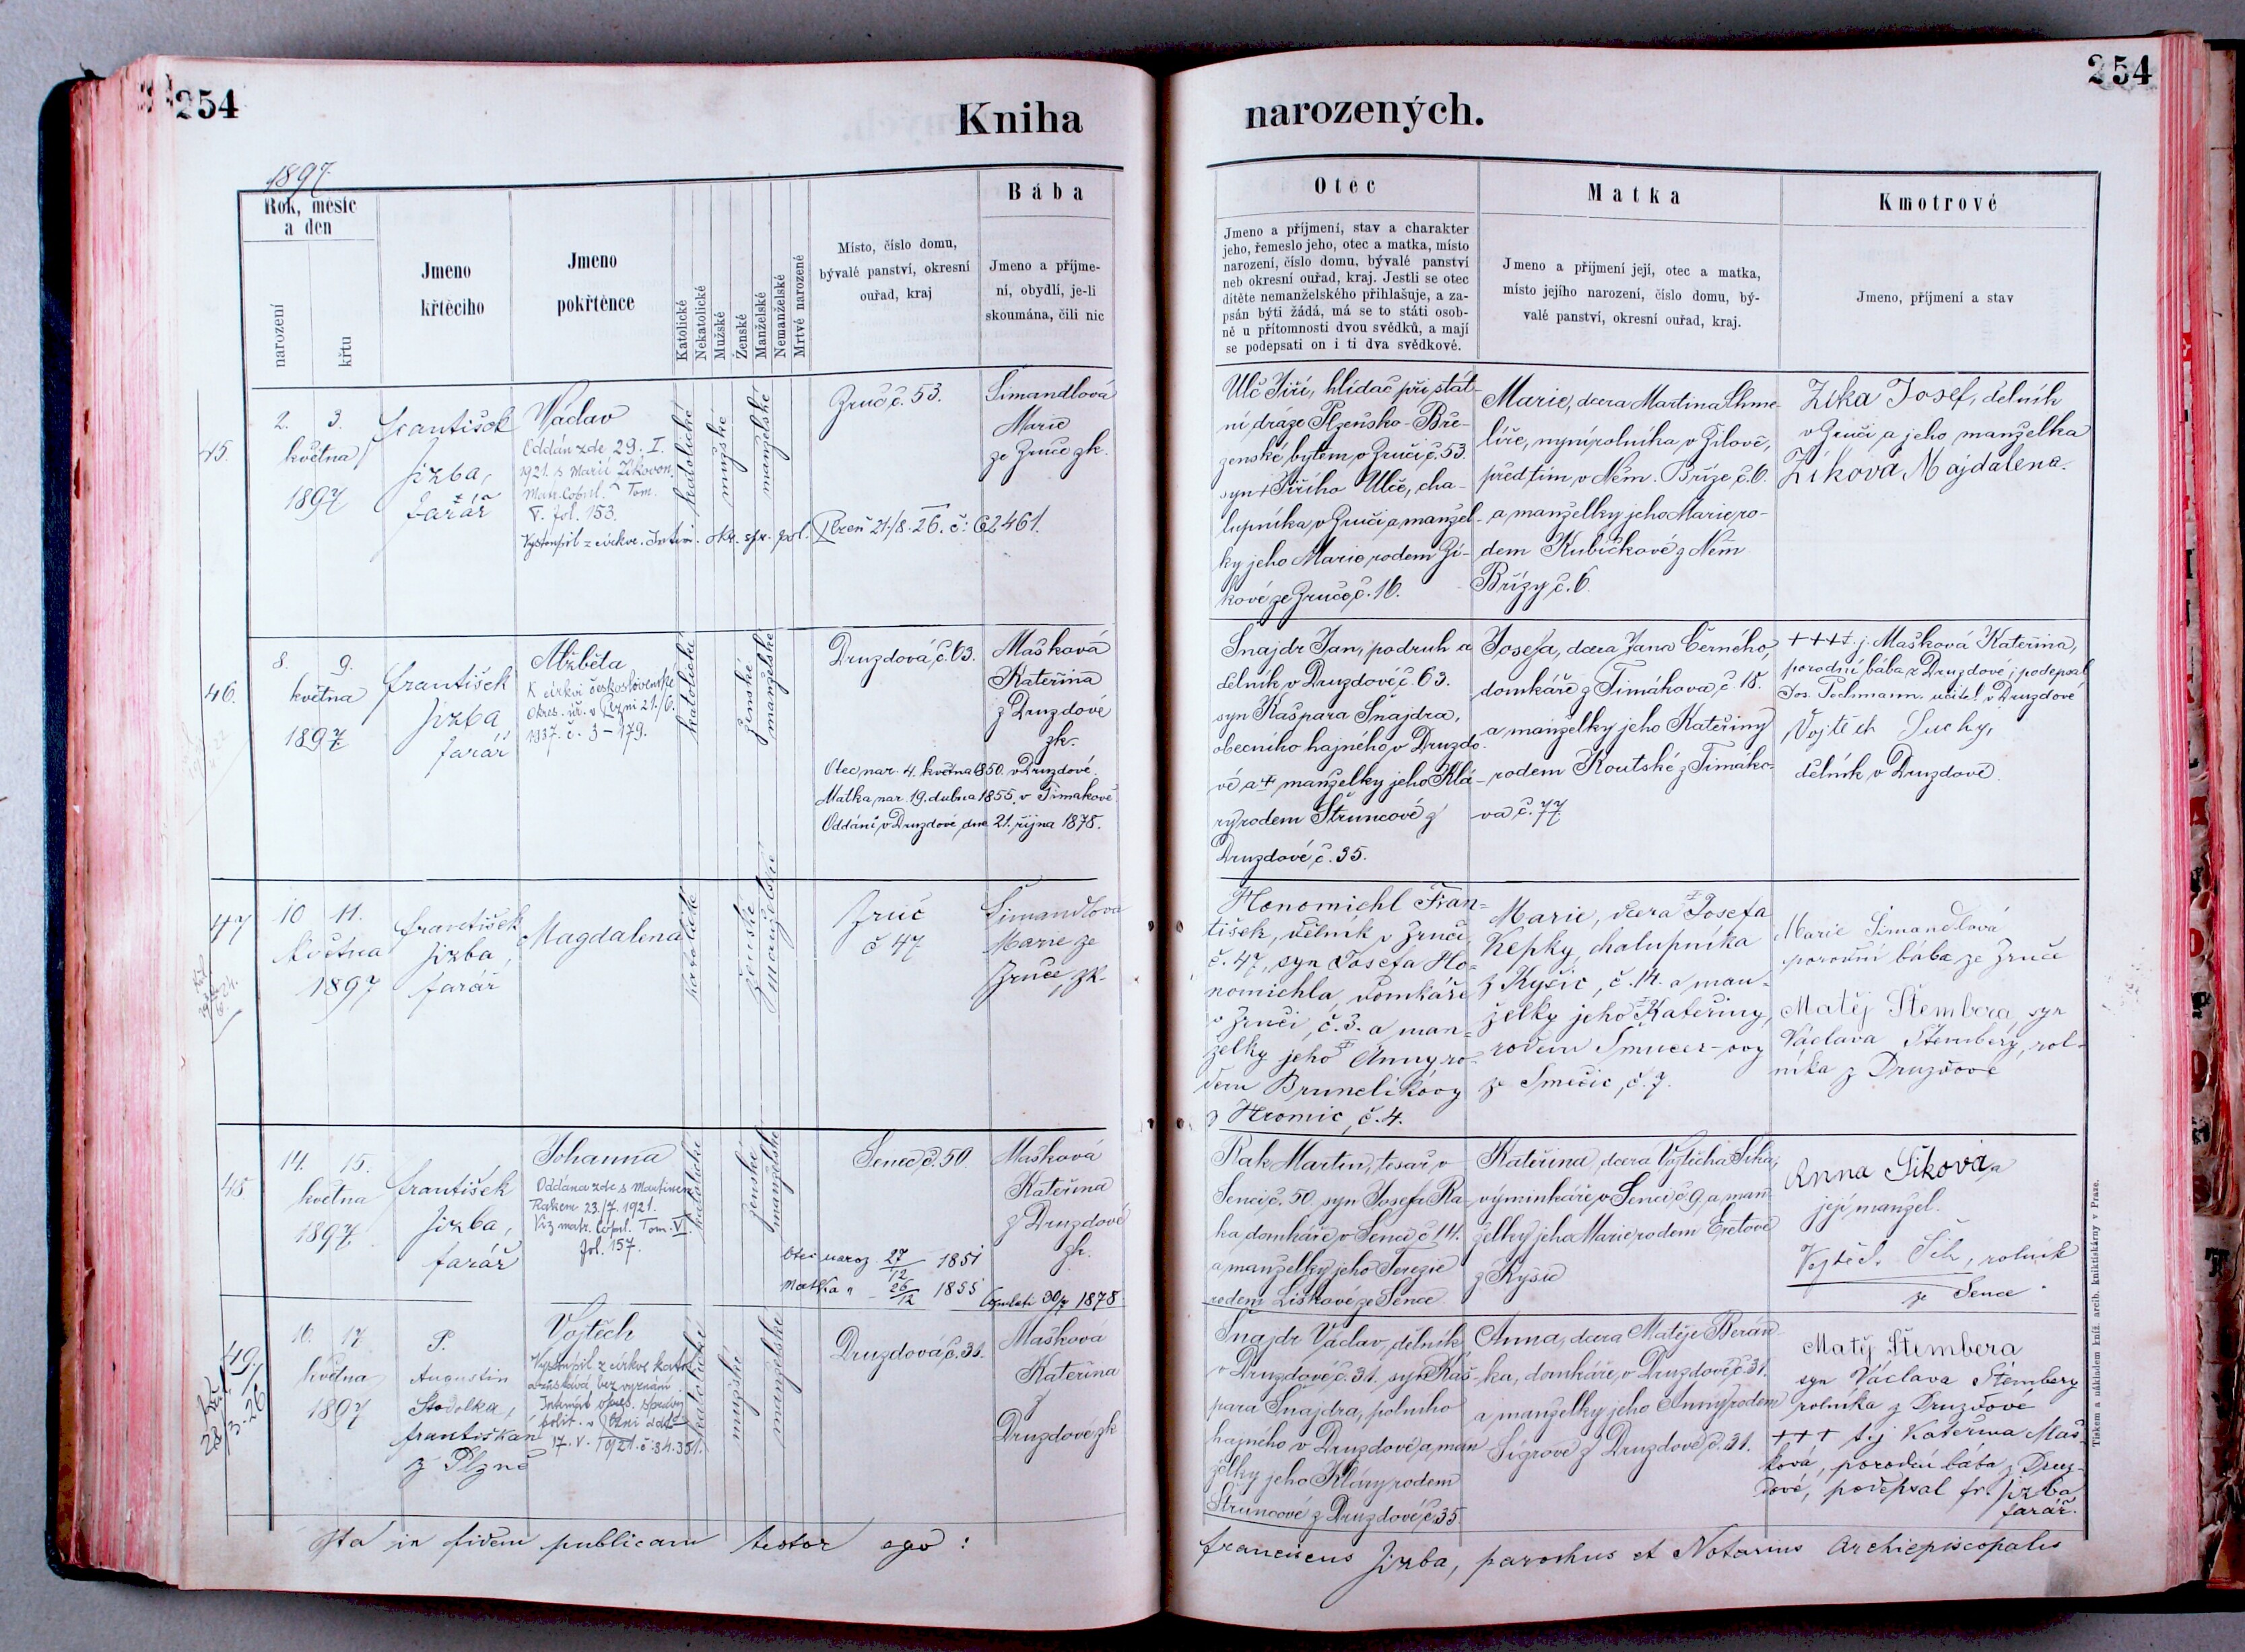 254
Kniha
1897
Rok, měsíc
a den
narození
křtu
Jmeno
křtěcího
Jmeno
pokřtěnce
Katolické
Nekatolické
Mužské
Ženské
Manželské
Nemanželské
Mrtvé narozené
Místo, číslo domu,
bývalé panství, okresní
ouřad, kraj
Bába
Jmeno a příjme-
ní, obydlí, je-li
skoumána, čili nic
45.
2. 3.
května
1897
František
Jizba,
farář
Václav
Oddán zde 29. I.
1921 s Marií Zíkovou
Matr. Copul. Tom.
V. fol. 153.
Vystoupil z církve. Intim. okr. spr. pol. Plzeň 21./8. 26. č: 62461.
katolické
mužské
manželské
Zruč č. 53.
Šimandlová
Marie
ze Zruče zk.
46.
8. 9.
května
1897
František
Jizba
farář
Alžběta
K církvi československé
Okres. úř. v Plzni 21./6.
1937. č. 3-179.
katolické
ženské
manželské
Druzdová č. 63.
Mašková
Kateřina
z Druzdové
zk.
Otec nar. 4. května 1850. v Druzdové.
Matka nar. 19. dubna 1855. v Timákově
Oddáni v Druzdové dne 21. října 1878.
47
10 11.
května
1897
František
Jizba,
farář
Magdalena
katolické
ženské
manželské
Zruč
č 47
Šimandlová
Marie ze
Zruče, zk.
48
14. 15.
května
1897
František
Jizba,
farář
Johanna
Oddána zde s Martinem
Rakem 23./7. 1921.
Viz matr. Copul. Tom. V.
fol. 157.
katolické
ženské
manželské
Senec č. 50
Mašková
Kateřina
z Druzdové
zk.
Otec naroz. 27/12 1851
Matka " 26/12 1855 Copulati 30/7 1878
49.
16. 17
května
1897
P.
Augustin
Stodolka,
františkán
z Plzně
Vojtěch
Vystoupil z církve katol.
a zůstává bez vyznání
Intimát okres. správy
polit. v Plzni ddto
17. V. 1921. č: 34.351.
katolické
mužské
manželské
Druzdová č. 31.
Mašková
Kateřina
z
Druzdové zk
Ita in fidem publicam testor ego:
254
narozených.
Otec
Jmeno a příjmení, stav a charakter
jeho, řemeslo jeho, otec a matka, místo
narození, číslo domu, bývalé panství
neb okresní ouřad, kraj. Jestli se otec
dítěte nemanželského přihlašuje, a za-
psán býti žádá, má se to státi osob-
ně u přítomnosti dvou svědků, a mají
se podepsati on i ti dva svědkové.
Matka
Jmeno a příjmení její, otec a matka,
místo jejího narození, číslo domu, bý-
valé panství, okresní ouřad, kraj.
Kmotrové
Jmeno, příjmení a stav
Ulč Jiří, hlídač při stát-
ní dráze Plzeňsko-Bře-
zenské bytem v Zruči č. 53.
syn + Jiřího Ulče, cha-
lupníka v Zruči a manžel-
ky jeho Marie rodem Zí-
kové ze Zruče č. 16.
Marie, dcera Martina Chme-
líře, nyní rolníka v Žilově,
před tím v Něm. Bříze č. 6.
a manželky jeho Marie ro-
dem Kubíčkové z Něm
Břízy č. 6
Zíka Josef, dělník
v Zruči a jeho manželka
Zíková Majdalena.
Šnajdr Jan, podruh a
dělník v Druzdové č. 63.
syn Kašpara Šnajdra,
obecního hajného v Druzdo-
vé a + manželky jeho Klá-
ry rodem Štruncové z
Druzdové č. 35.
Josefa, dcera Jana Černého,
domkáře z Timákova č. 18.
a manželky jeho Kateřiny
rodem Koutské z Timáko-
va č. 77.
+++ t. j. Mašková Kateřina,
porodní bába z Druzdové; podepsal
Jos. Pechmann, učitel v Druzdové
Vojtěch Suchý,
dělník v Druzdové.
Honomichl Fran-
tišek, dělník v Zruči
č. 47, syn Josefa Ho-
nomichla, domkáře
v Zruči, č. 3. a man-
želky jeho + Anny ro-
dem Brunclíkovy
z Hromic, č. 4.
Marie, dcera + Josefa
Kepky, chalupníka
z Kyšic, č. 14. a man-
želky jeho + Kateřiny,
rodem Šmucer-ovy
ze Smečic, č. 7.
Marie Šimandlová
porodní bába ze Zruče
Matěj Štembera, syn
Václava Štembery, rol-
níka z Druzdové
Rak Martin, tesař v
Senci č. 50, syn Josefa Ra-
ka domkáře v Senci č 14.
a manželky jeho Terezie
rodem Liškové ze Sence
Kateřina, dcera Vojtěcha Šíka,
výminkáře v Senci č 9. a man-
želky jeho Marie rodem Eretové
z Kyšic
Anna Šiková a
její manžel.
Vojtěch Šik, rolník
ze Sence
Šnajdr Václav, dělník
v Druzdové č. 31. syn Kaš-
para Šnajdra, polního
hajného v Druzdové a man
želky jeho Kláry rodem
Štruncové z Druzdové č. 35.
Anna, dcera Matěje Berán-
ka, domkáře v Druzdové č. 31.
a manželky jeho Anny rodem
Šígrové z Druzdové č. 31.
Matěj Štembera
syn Václava Štembery
rolníka z Druzdové
+++ t. j. Kateřina Maš-
ková, porodní bába z Druz-
dové, podepsal fr. Jizba
farář.
Franciscus Jizba, parochus et Notarius Archiepiscopalis
Tiskem a nákladem kníž. arcib. knihtiskárny v Praze.